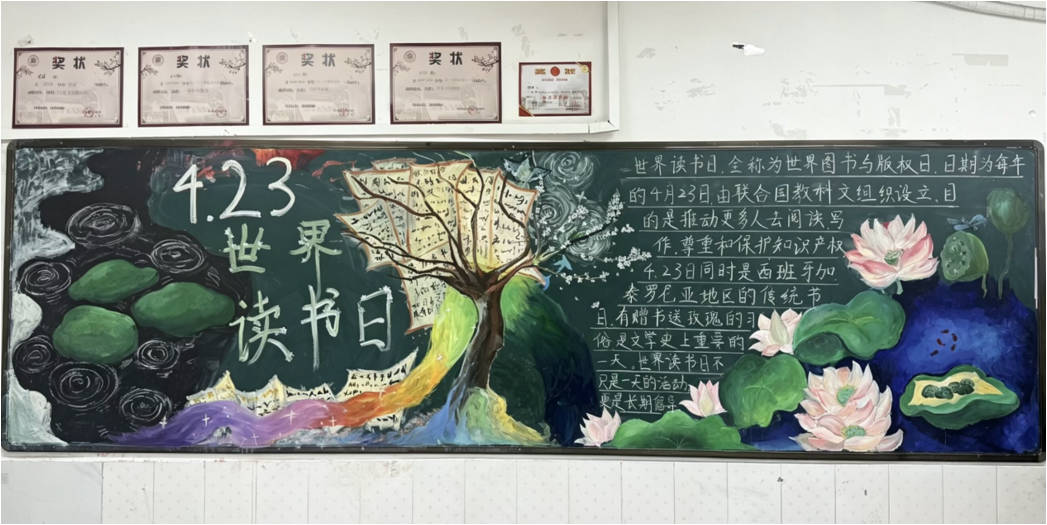 奖状
奖状
奖状
奖状
4.23
世界
读书日
世界读书日,全称为世界图书与版权日,日期为每年
的4月23日,由联合国教科文组织设立,目
的是推动更多人去阅读写
作,尊重和保护知识产权
4.23日同时是西班牙加
泰罗尼亚地区的传统节
日,有赠书送玫瑰的习
俗是文学史上重要的
一天,世界读书日不
只是一天的活动,
更是长期倡导